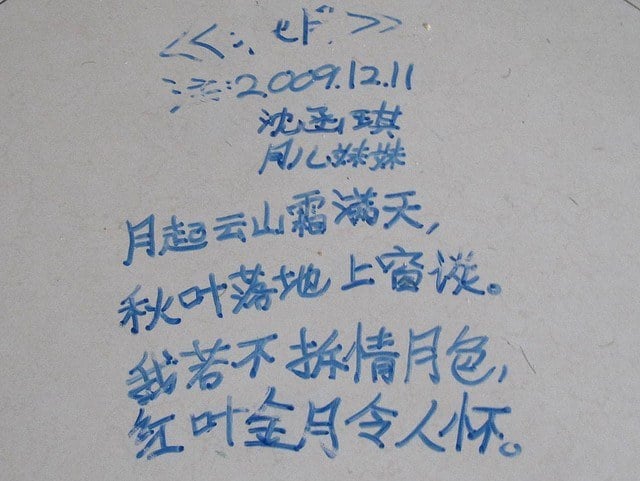 2009.12.11
沈孟琪
月儿妹妹
月起云山霜满天,
秋叶落地上窗谈。
我若不拆情月色,
红叶金月令人怀。